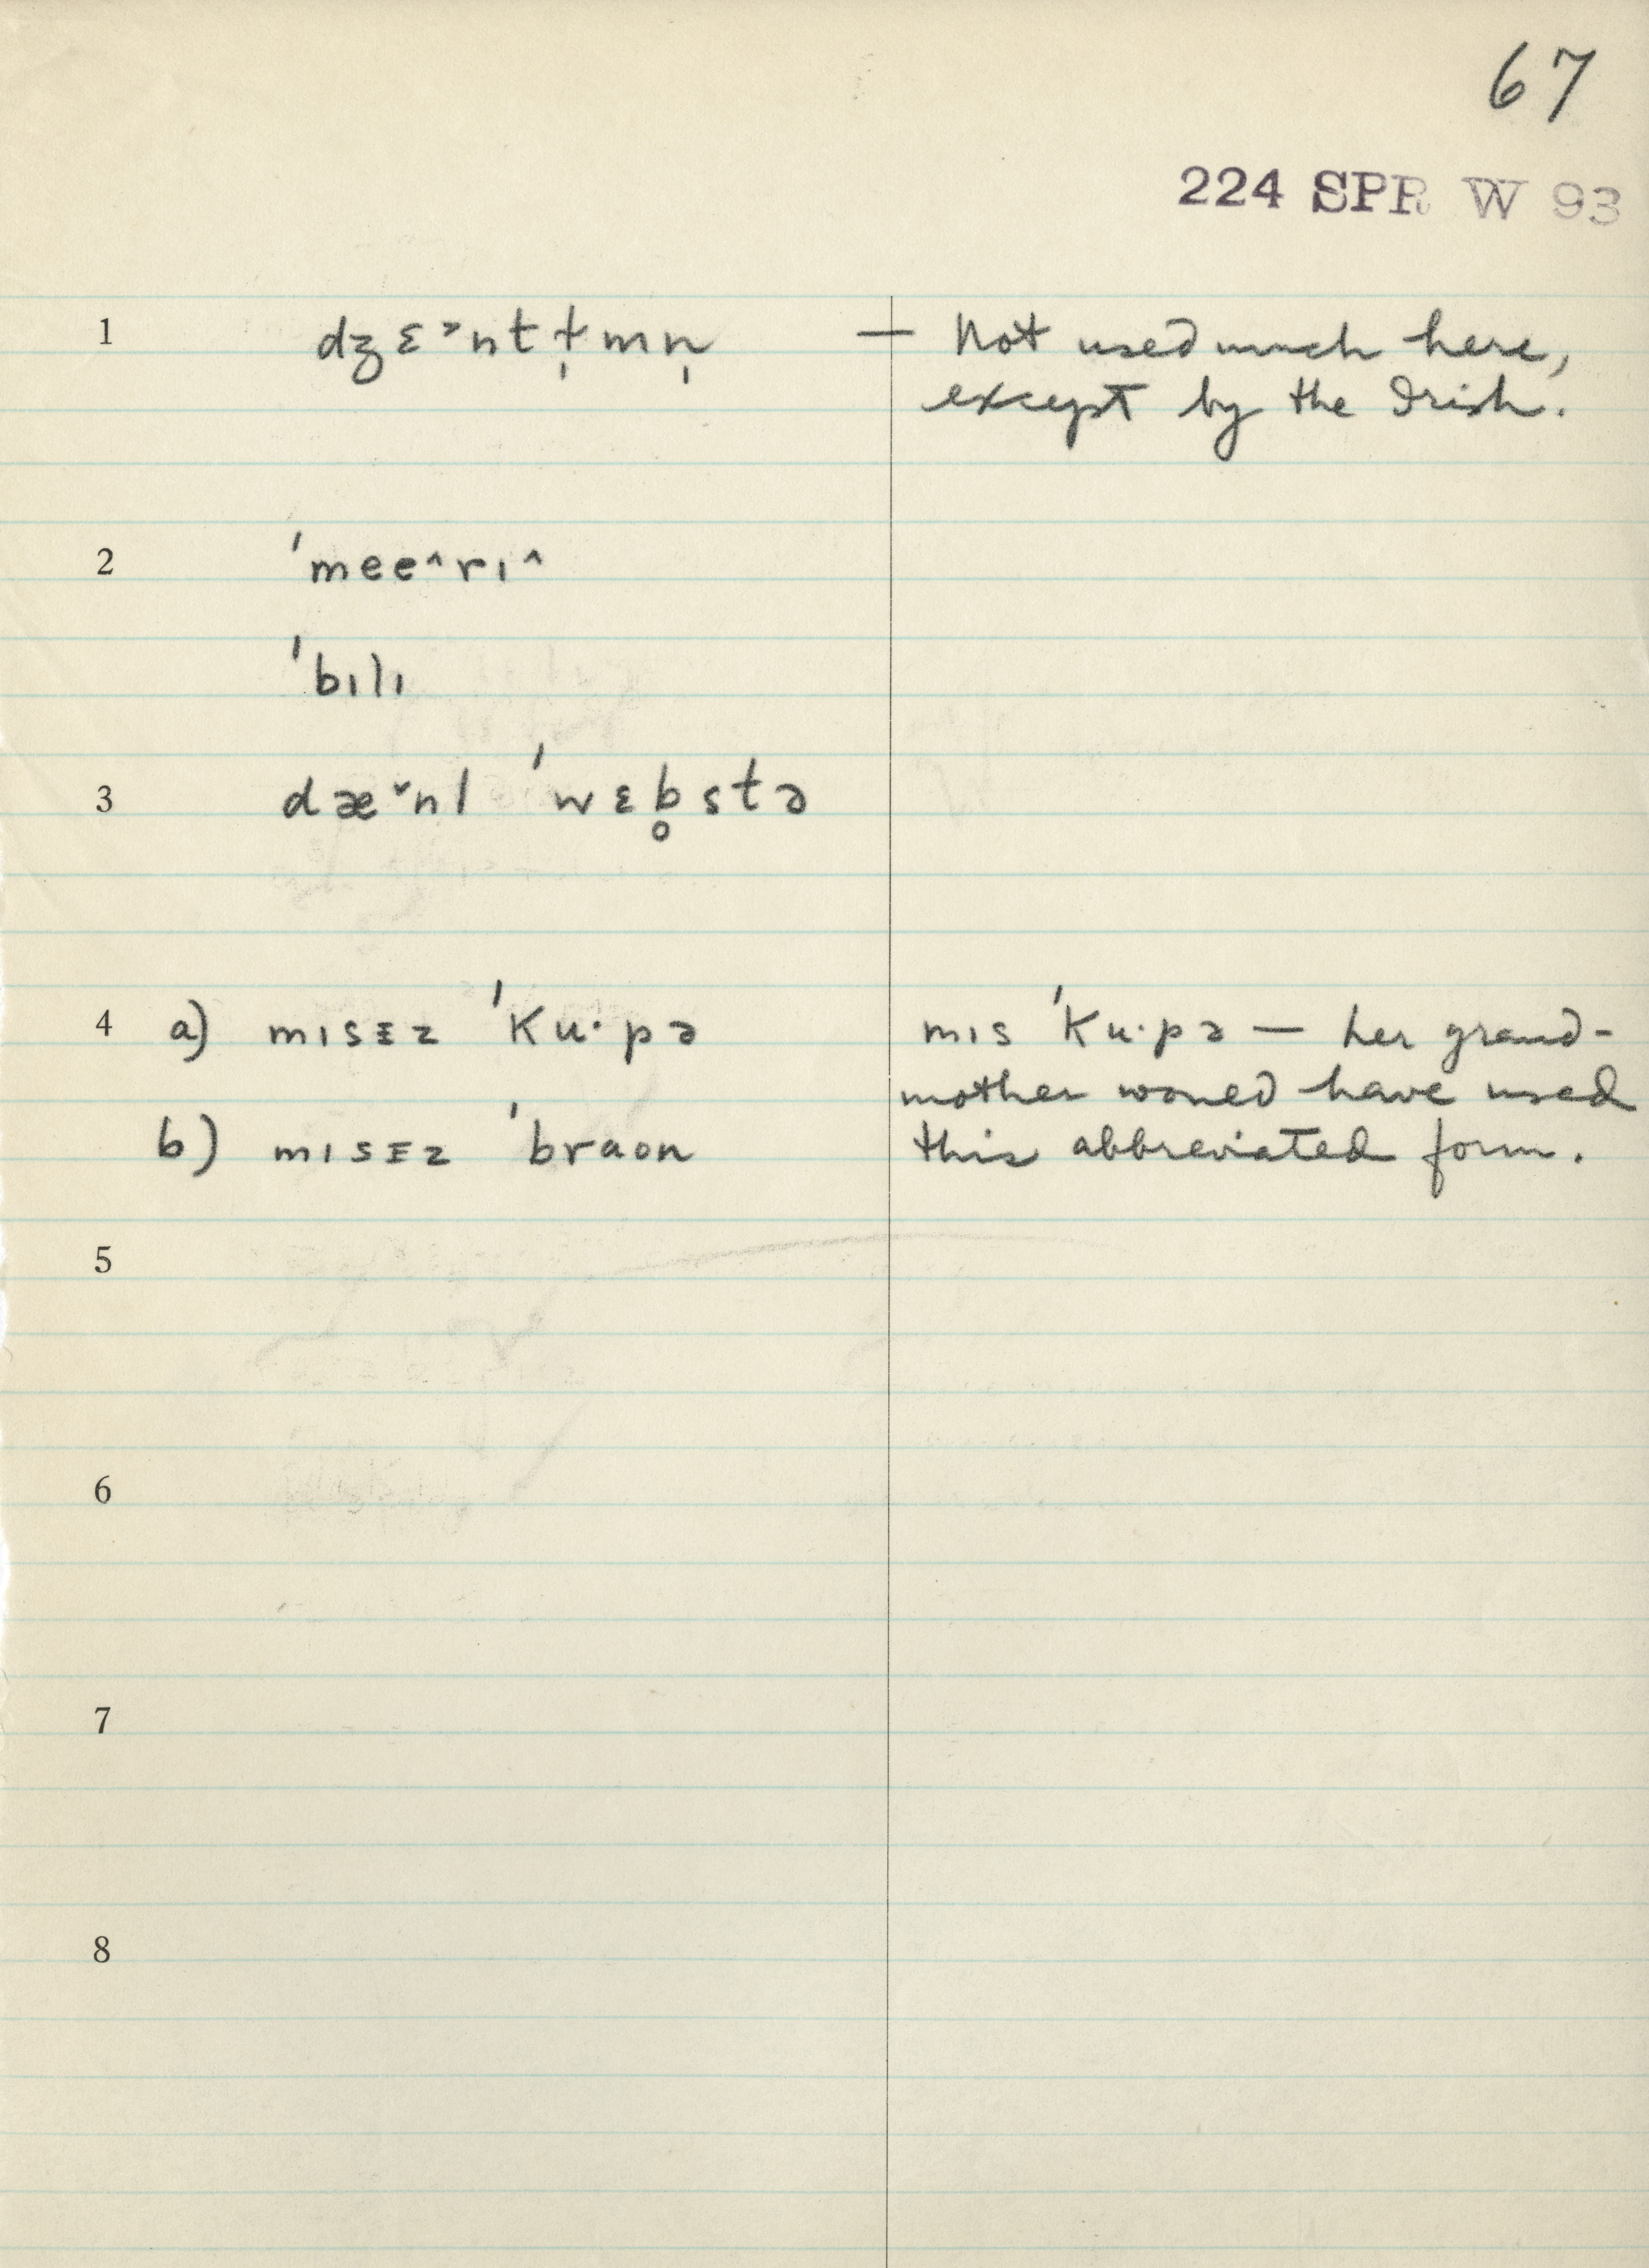 67
224 SPR W 93
1 dʒɛ˃nt ɫ̩mn̩ — Not used much here,
except by the Irish.
2 ˈmee^rɪ^
ˈbɪlɪ
3 dæ˅nl ˈwɛb̥stə
4 a) mɪsɪz ˈKu·pə mɪs ˈKu·pə — her grand-
mother would have used
b) mɪsɪz ˈbraʊn this abbreviated form.
5
6
7
8